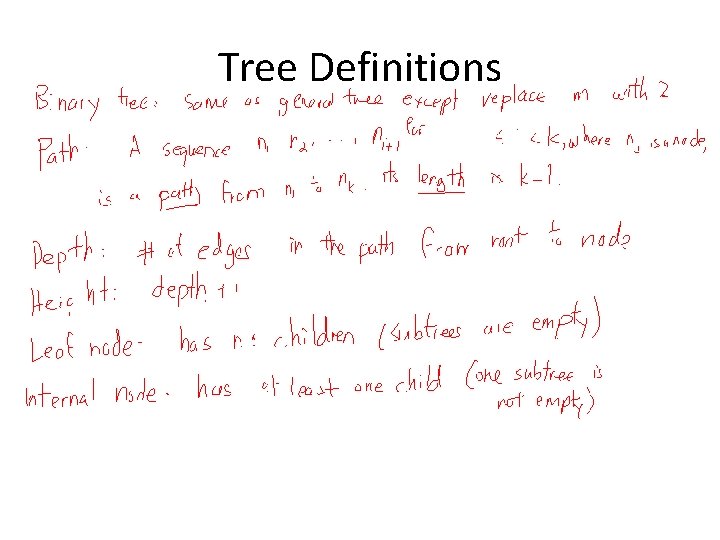 Tree Definitions
Binary tree: same as general tree except replace m with 2
Path: A sequence n1, n2, ..., ni+1 for < k, where nj is a node,
is a path from n1 to nk. its length is k-1.
Depth: # of edges in the path from root to node
Height: depth +1
Leaf node- has no children (subtrees are empty)
Internal node- has at least one child (one subtree is
not empty)